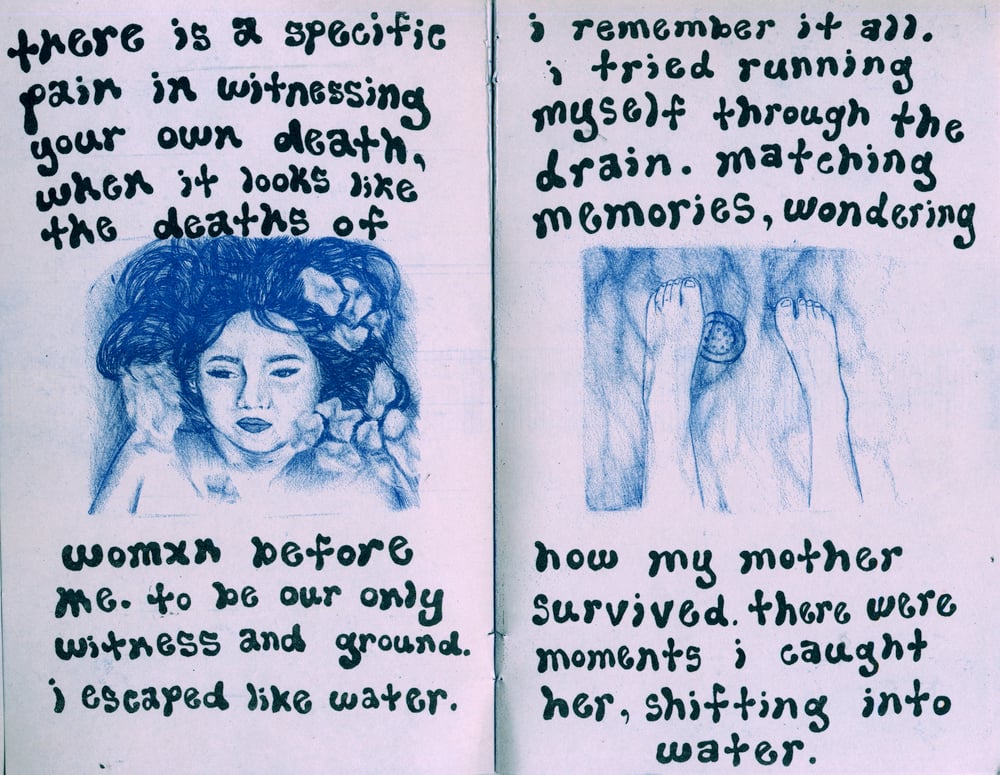 there is a specific
pain in witnessing
your own death,
when it looks like
the deaths of
womxn before
me. to be our only
witness and ground.
i escaped like water.
i remember it all.
i tried running
myself through the
drain. matching
memories, wondering
how my mother
survived. there were
moments i caught
her, shifting into
water.